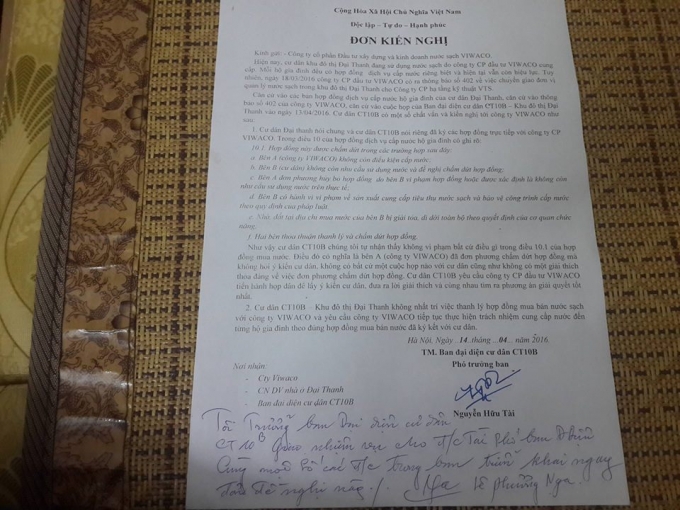 Cộng Hòa Xã Hội Chủ Nghĩa Việt Nam
Độc lập – Tự do – Hạnh phúc
ĐƠN KIẾN NGHỊ
Kính gửi: - Công ty cổ phần Đầu tư xây dựng và kinh doanh nước sạch VIWACO
Hiện nay, cư dân khu đô thị Đại Thanh đang sử dụng nước sạch do công ty CP đầu tư VIWACO cung
cấp. Mỗi hộ gia đình đều có hợp đồng dịch vụ cấp nước riêng biệt và hiện tại vẫn còn hiệu lực. Tuy
nhiên, ngày 18/03/2016 công ty CP đầu tư VIWACO có ra thông báo số 402 về việc chuyển giao đơn vị
quản lý nước sạch trong khu đô thị Đại Thanh cho Công ty CP hạ tầng kỹ thuật VTS.
Căn cứ vào các bản hợp đồng dịch vụ cấp nước hộ gia đình của cư dân Đại Thanh, căn cứ vào thông
báo số 402 của công ty VIWACO, căn cứ vào cuộc họp của Ban đại diện cư dân CT10B – Khu đô thị Đại
Thanh vào ngày 13/04/2016. Cư dân CT10B có một số chất vấn và kiến nghị tới công ty VIWACO như
sau:
1. Cư dân Đại Thanh nói chung và cư dân CT10B nói riêng đã ký các hợp đồng trực tiếp với công ty CP
VIWACO. Trong điều 10 của hợp đồng dịch vụ cấp nước hộ gia đình có ghi rõ:
10.1. Hợp đồng này được chấm dứt trong các trường hợp sau đây:
a. Bên A (công ty VIWACO) không còn điều kiện cấp nước;
b. Bên B (cư dân) không còn nhu cầu sử dụng nước và đề nghị chấm dứt hợp đồng;
c. Bên A đơn phương hủy bỏ hợp đồng do bên B vi phạm hợp đồng hoặc được xác định là không còn
nhu cầu sử dụng nước trên thực tế;
d. Bên B có hành vi vi phạm về sản xuất cung cấp tiêu thụ nước sạch và bảo vệ công trình cấp nước
theo quy định của pháp luật.
e. Nhà, đất tại địa chỉ mua nước của bên B bị giải tỏa, di dời toàn bộ theo quyết định của cơ quan chức
năng;
f. Hai bên thỏa thuận thanh lý và chấm dứt hợp đồng.
Như vậy cư dân CT10B chúng tôi tự nhận thấy không vi phạm bất cứ điều gì trong điều 10.1 của hợp
đồng mua nước. Điều đó có nghĩa là bên A (công ty VIWACO) đã đơn phương chấm dứt hợp đồng mà
không hỏi ý kiến cư dân, không có bất cứ một cuộc họp nào với cư dân cũng như không có một giải thích
thỏa đáng về việc đơn phương chấm dứt hợp đồng. Cư dân CT10B yêu cầu công ty CP đầu tư VIWACO
tiến hành họp dân để lấy ý kiến cư dân, đưa ra lời giải thích và cùng nhau tìm ra phương án giải quyết tốt
nhất.
2. Cư dân CT10B – Khu đô thị Đại Thanh không nhất trí việc thanh lý hợp đồng mua bán nước sạch
với công ty VIWACO và yêu cầu công ty VIWACO tiếp tục thực hiện trách nhiệm cung cấp nước đến
từng hộ gia đình theo đúng hợp đồng mua bán nước đã ký kết với cư dân.
Hà Nội, Ngày .14.tháng ..04.. năm 2016
TM. Ban đại diện cư dân CT10B
Phó trưởng ban
Nơi nhận
- Cty Viwaco
- CN DV nhà ở Đại Thanh
- Ban đại diện cư dân CT10B
Nguyễn Hữu Tài
Tôi Trưởng ban Đại diện cư dân
CT10B Giao nhiệm vụ cho Đ/c Tài phó ban
Cùng một số các Đ/c trong ban triển khai ngay
đề nghị này./. Nga Lê Phương Nga.